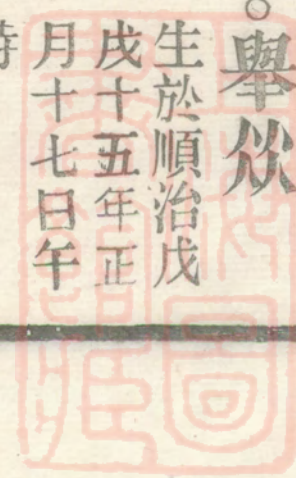 ○舉烋
生於順治戊
戌十五年正
月十七日午
時